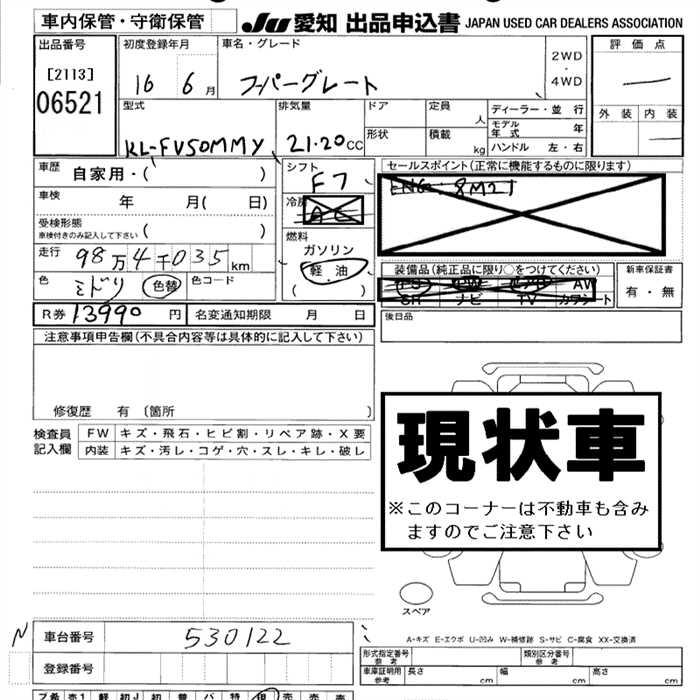 車内保管・守衛保管
JU 愛知 出品申込書 JAPAN USED CAR DEALERS ASSOCIATION
出品番号 初度登録年月 車名・グレード 評価点
[2113] 16 6月 スーパーグレート 2WD・4WD
06521
外装 内装
型式 排気量 ドア 定員 人 ディーラー・並行
モデル年式 年
KL-FV50MMY 21.20cc 形状 積載 kg ハンドル 左・右
車歴 自家用・( ) シフト F7 セールスポイント(正常に機能するものに限ります)
車検 年 月( 日) 冷房 AC
受検形態 車検付きのみ記入して下さい ( ) 燃料
走行 98万4千035km ガソリン
軽油
( )
色 ミドリ 色替 色コード
装備品(純正品に限り○をつけてください) 新車保証書
PS PW AW 有・無
SR ナビ TV カラシート
R券 13990円 名変通知期限 月 日 後日品
注意事項申告欄(不具合内容等は具体的に記入して下さい)
修復歴 有 〔箇所 〕
検査員記入欄 FW キズ・飛石・ヒビ割・リペア跡・X要
内装 キズ・汚レ・コゲ・穴・スレ・キレ・破レ
現状車
※このコーナーは不動車も含み
ますのでご注意下さい
スペア
A-キズ E-エクボ U-凹み W-補修跡 S-サビ C-腐食 XX-交換済
N 車台番号 530122
登録番号
形式指定番号 参考 類別区分番号 参考
車庫証明用 参考 長さ cm 幅 cm 高さ cm